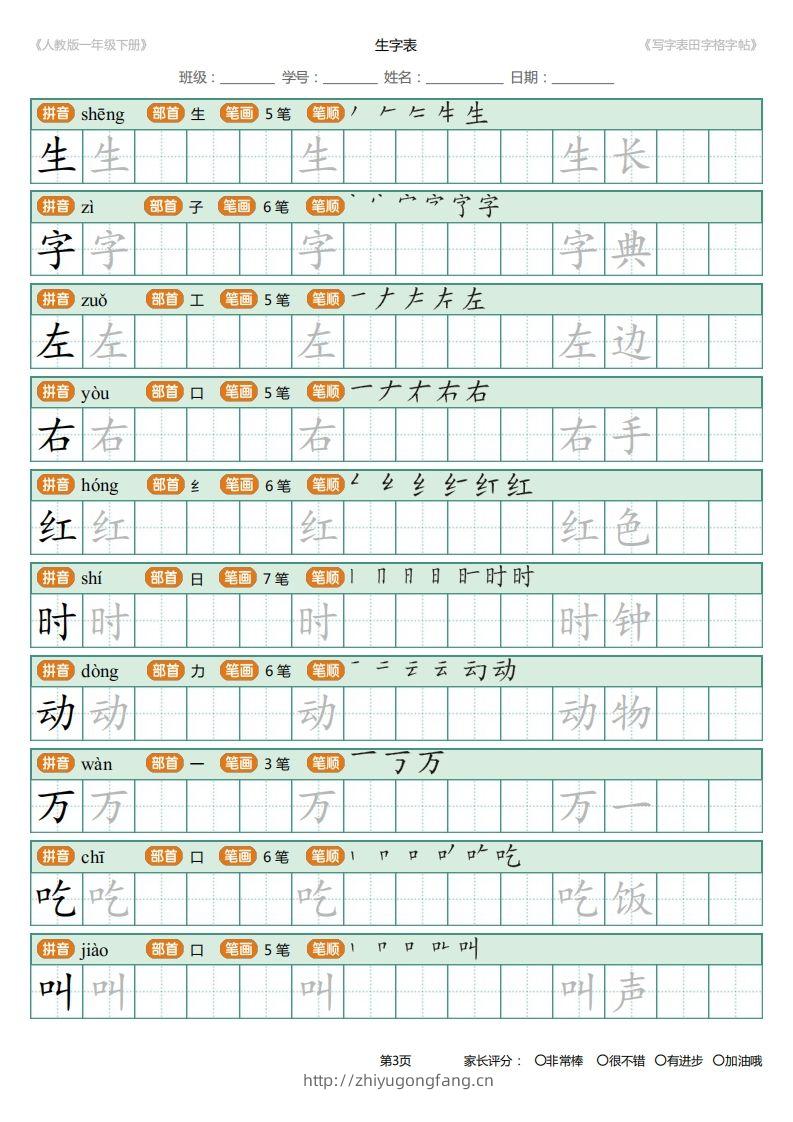 《人教版一年级下册》 生字表 《写字表田字格字帖》
班级：_______ 学号：_______ 姓名：__________ 日期：________
拼音 shēng 部首 生 笔画 5 笔 笔顺 生
生 生 生 生 长
拼音 zì 部首 子 笔画 6 笔 笔顺 字
字 字 字 字 典
拼音 zuǒ 部首 工 笔画 5 笔 笔顺 左
左 左 左 左 边
拼音 yòu 部首 口 笔画 5 笔 笔顺 右
右 右 右 右 手
拼音 hóng 部首 纟 笔画 6 笔 笔顺 红
红 红 红 红 色
拼音 shí 部首 日 笔画 7 笔 笔顺 时
时 时 时 时 钟
拼音 dòng 部首 力 笔画 6 笔 笔顺 动
动 动 动 动 物
拼音 wàn 部首 一 笔画 3 笔 笔顺 万
万 万 万 万 一
拼音 chī 部首 口 笔画 6 笔 笔顺 吃
吃 吃 吃 吃 饭
拼音 jiào 部首 口 笔画 5 笔 笔顺 叫
叫 叫 叫 叫 声
第3页 家长评分： 〇非常棒 〇很不错 〇有进步 〇加油哦
http://zhiyugongfang.cn